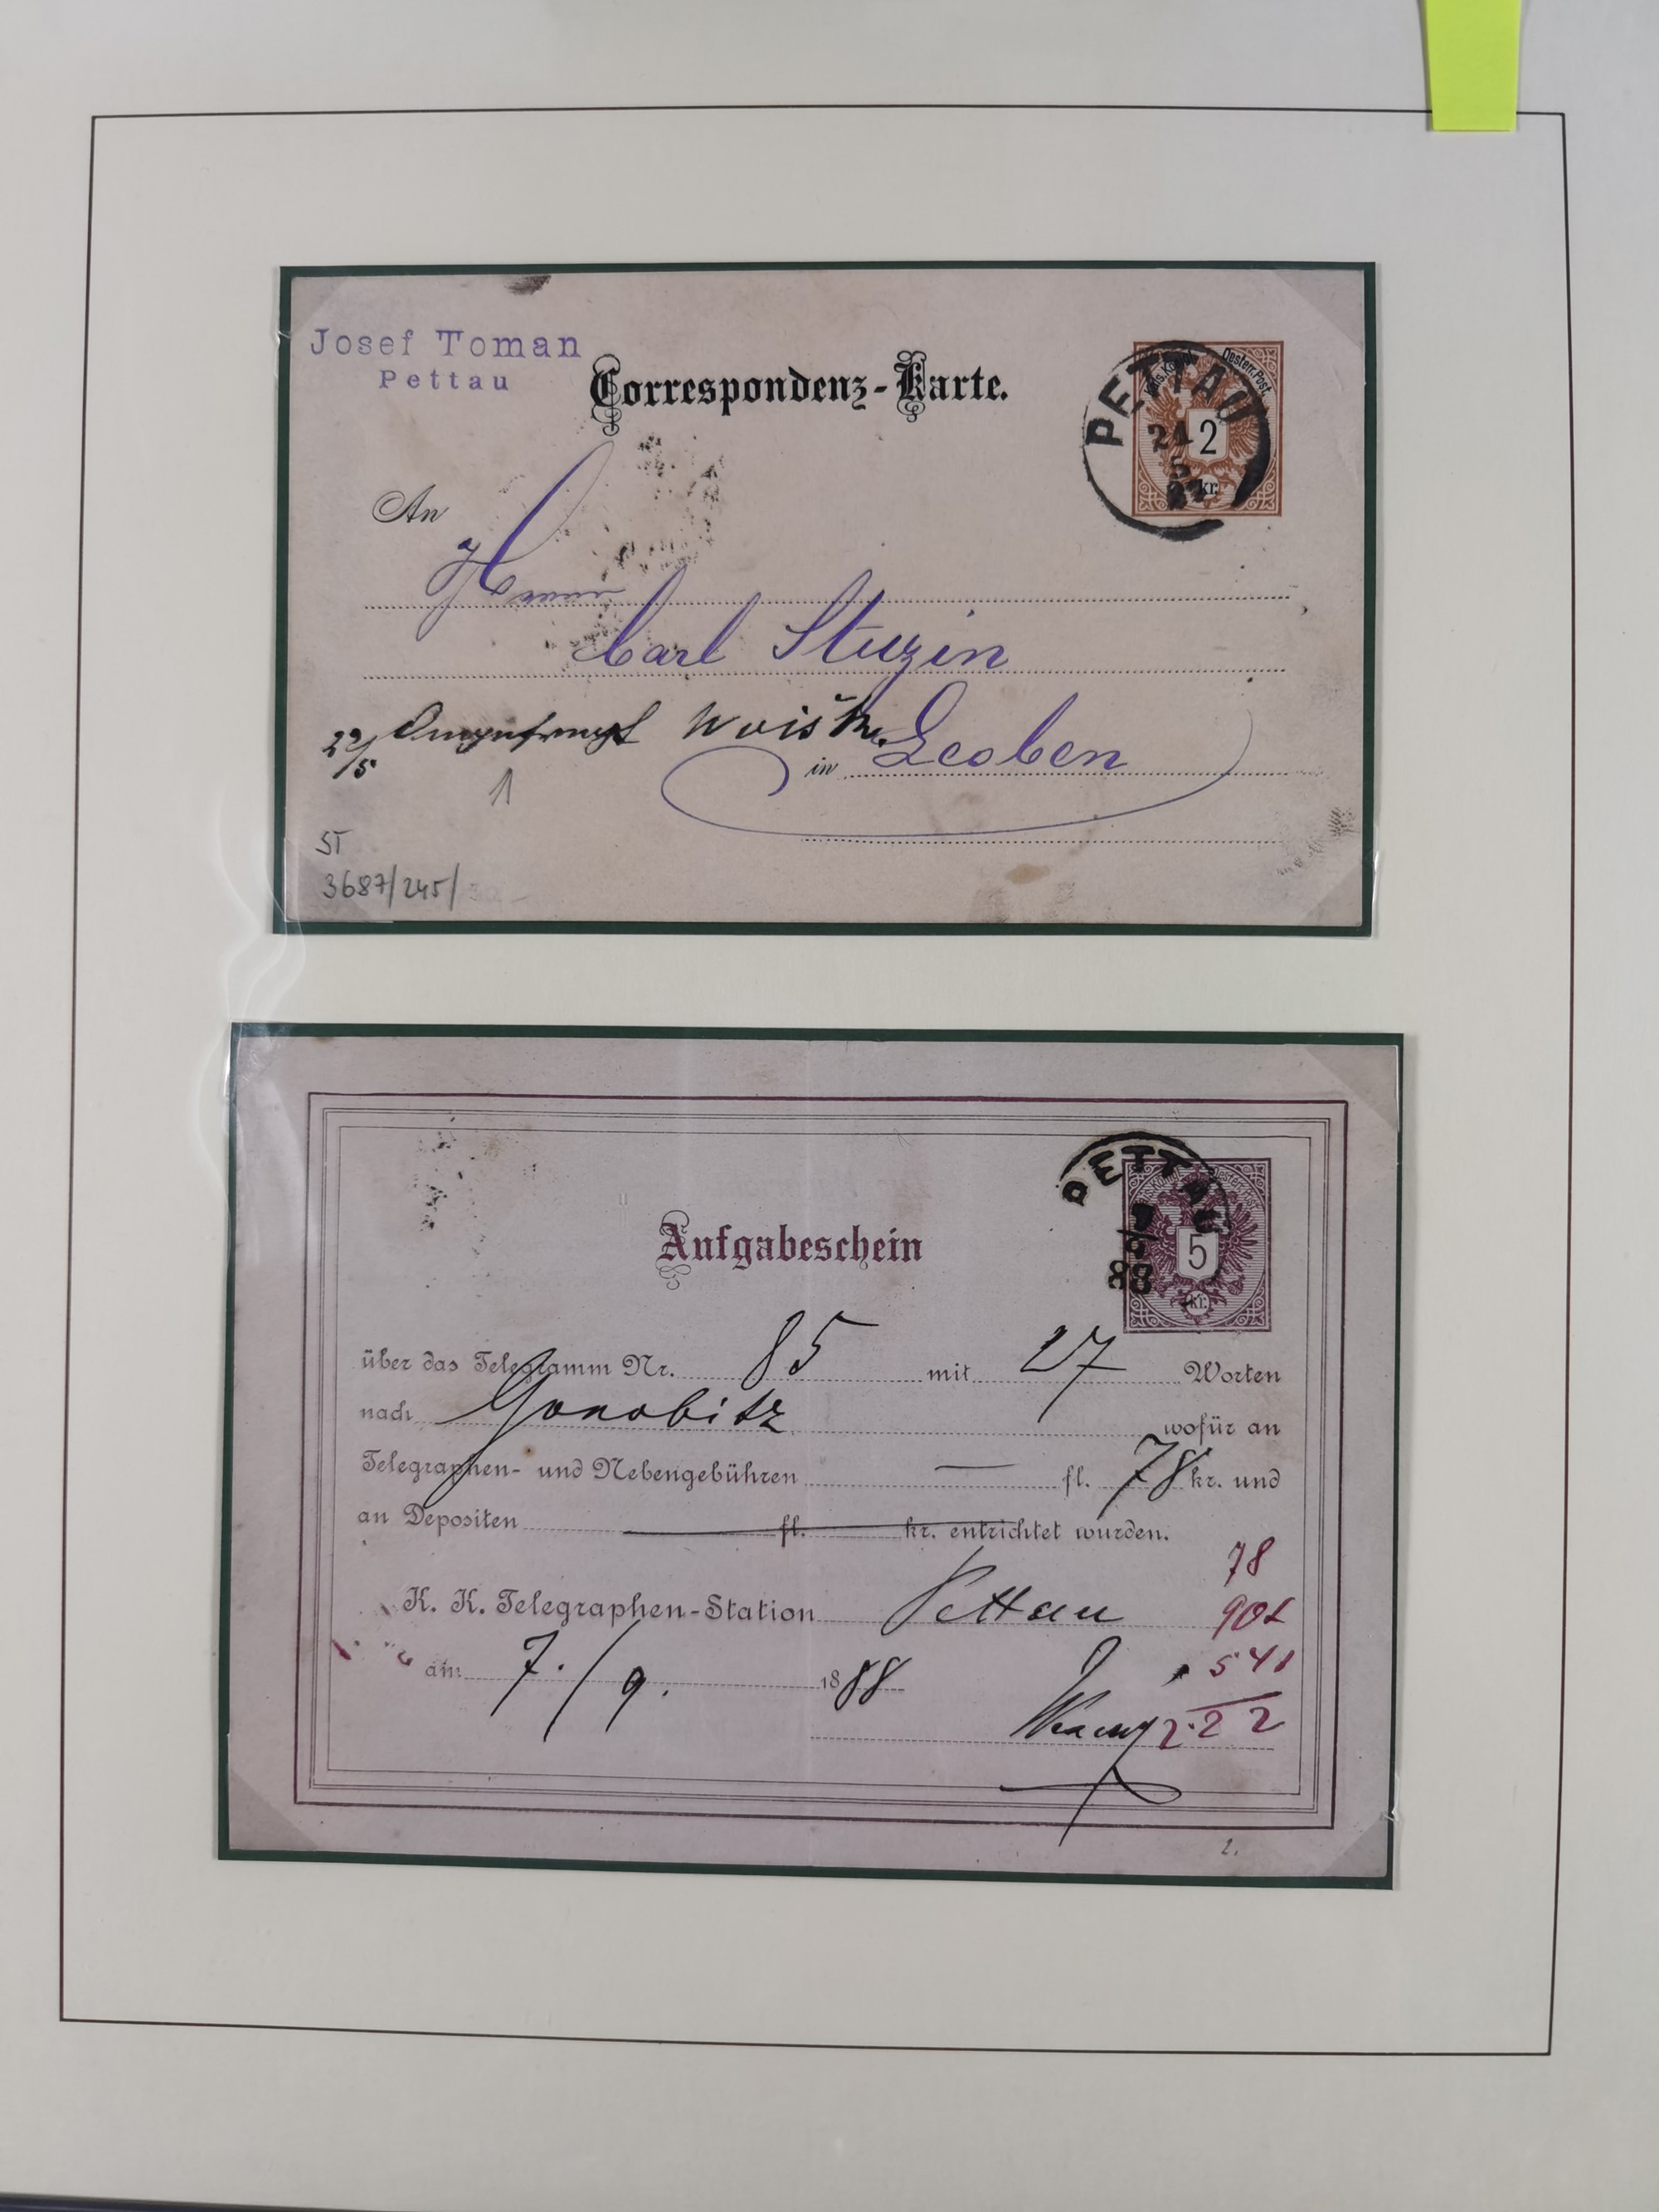 Josef Toman
Pettau
Correspondenz-Karte.
Kais. Königl. Oesterr. Post.
2
kr.
PETTAU
21
5
An
Herrn
Carl Stuzin
22/5
in Leoben
1
ST
3687/245/
PETTAU
7
9
88
5
kr.
Aufgabeschein
über das Telegramm Nr. 85 mit 27 Worten
nach Gonobitz wofür an
Telegraphen- und Nebengebühren — fl. 78 kr. und
an Depositen fl. kr. entrichtet wurden.
78
K. K. Telegraphen-Station Pettau
90
am 7./9. 1888
54
2.22
2.